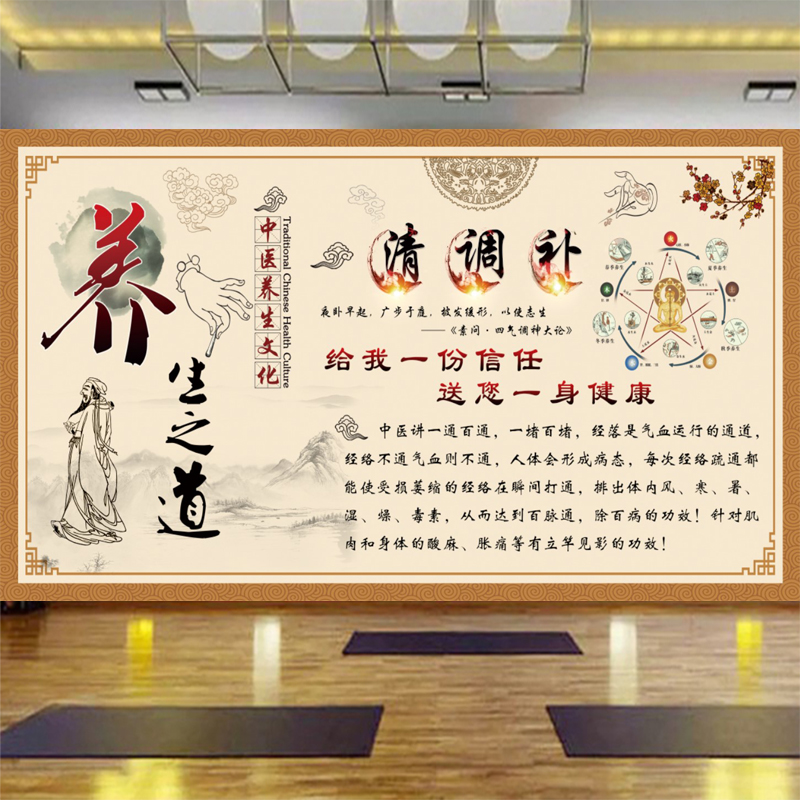 养生之道
中医养生文化
Traditional Chinese Health Culture
清调补
夜卧早起，广步于庭，披发缓形，以使志生
——《素问·四气调神大论》
给我一份信任
送您一身健康
中医讲一通百通，一堵百堵，经落是气血运行的通道，
经络不通气血则不通，人体会形成病态，每次经络疏通都
能使受损萎缩的经络在瞬间打通，排出体内风、寒、暑、
湿、燥、毒素，从而达到百脉通，除百病的功效！针对肌
肉和身体的酸麻、胀痛等有立竿见影的功效！
春季养生
夏季养生
冬季养生
秋季养生